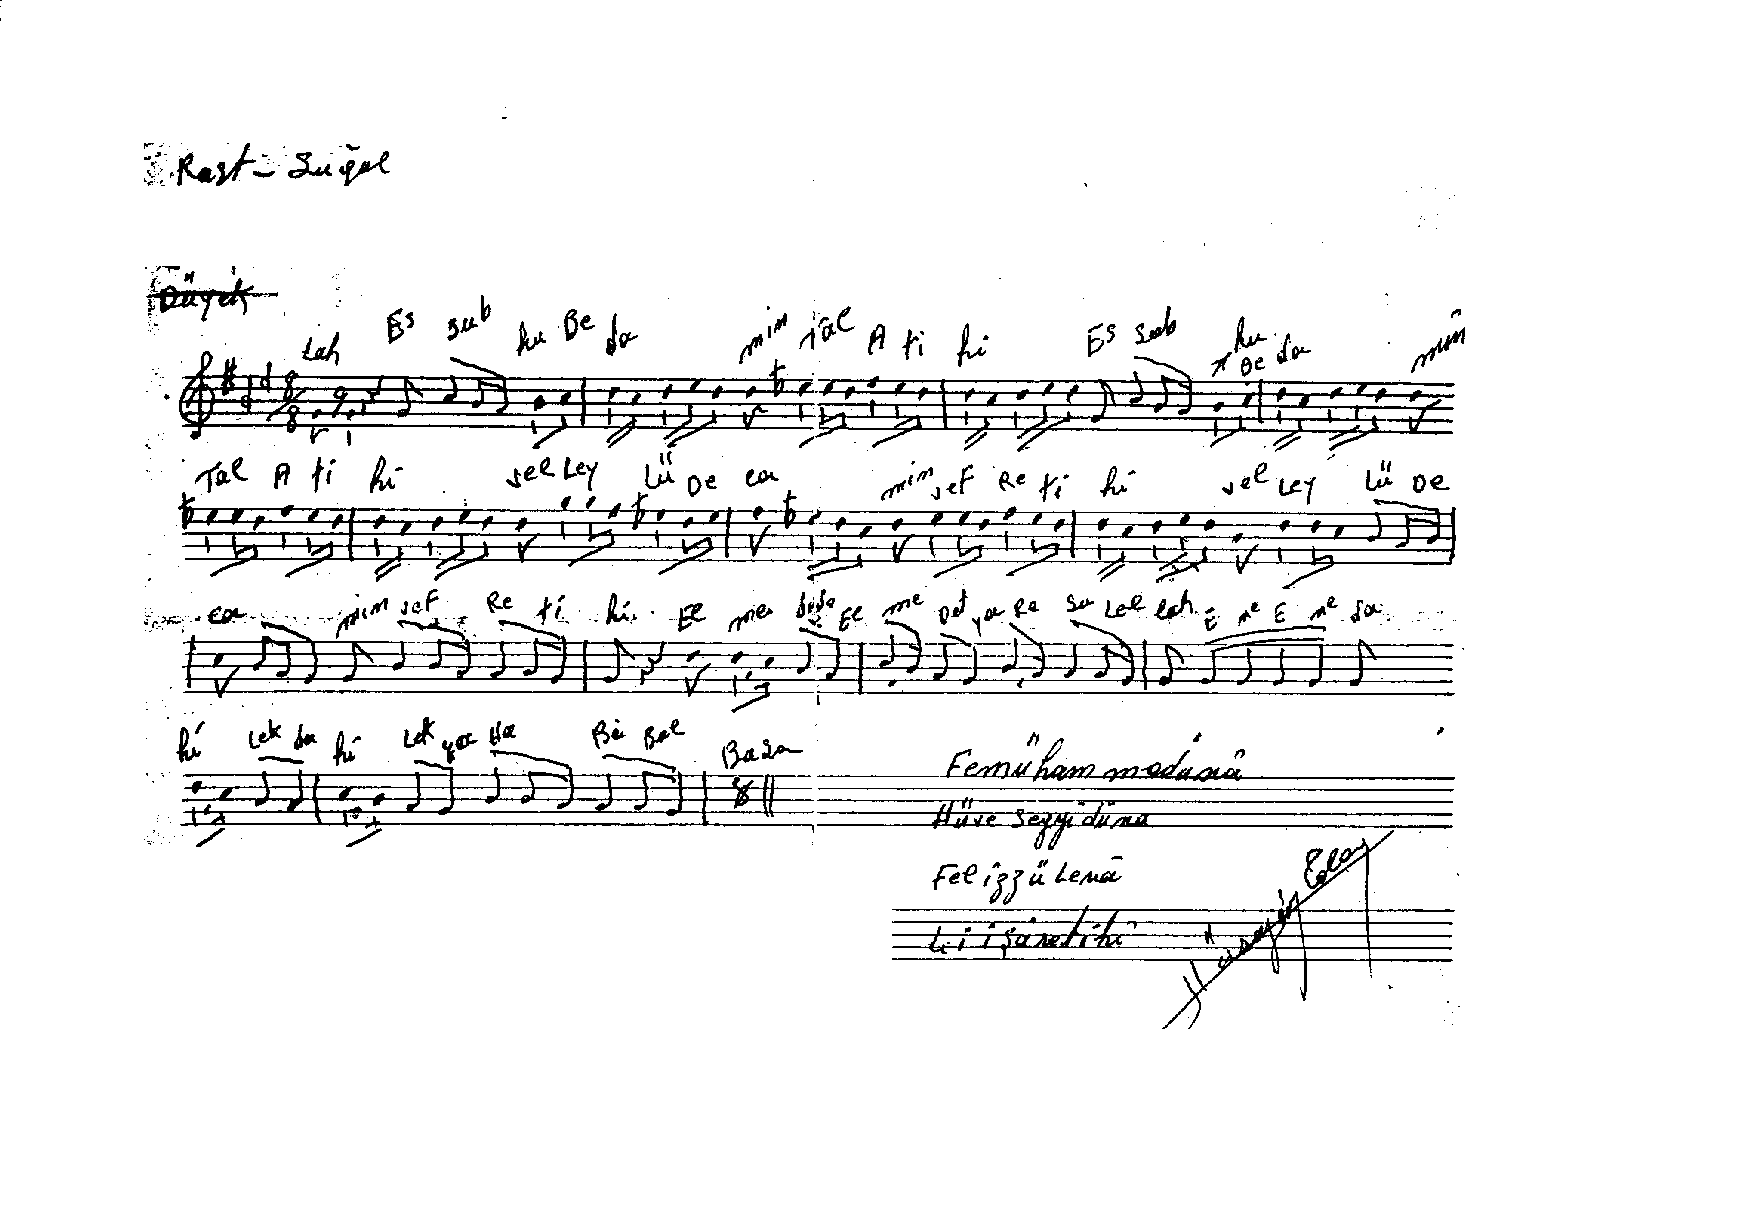 Rast - Suğul
Düyek
Lah Es sub hu Be da min Tal A ti hi Es sub hu Be da min
Tal A ti hi vel Ley lü De ca min vef Re ti hi vel Ley lü De
ca min vef Re ti hi El me dede El me Det ya Re su Lal lah E ne E ne da
hi Lek da hi Lek ya Ha Bi Bal Basa
Femühammadünâ
Hüve Seyyidüna
Fel izzü Lenâ
Li işâretihi
Hüseyin